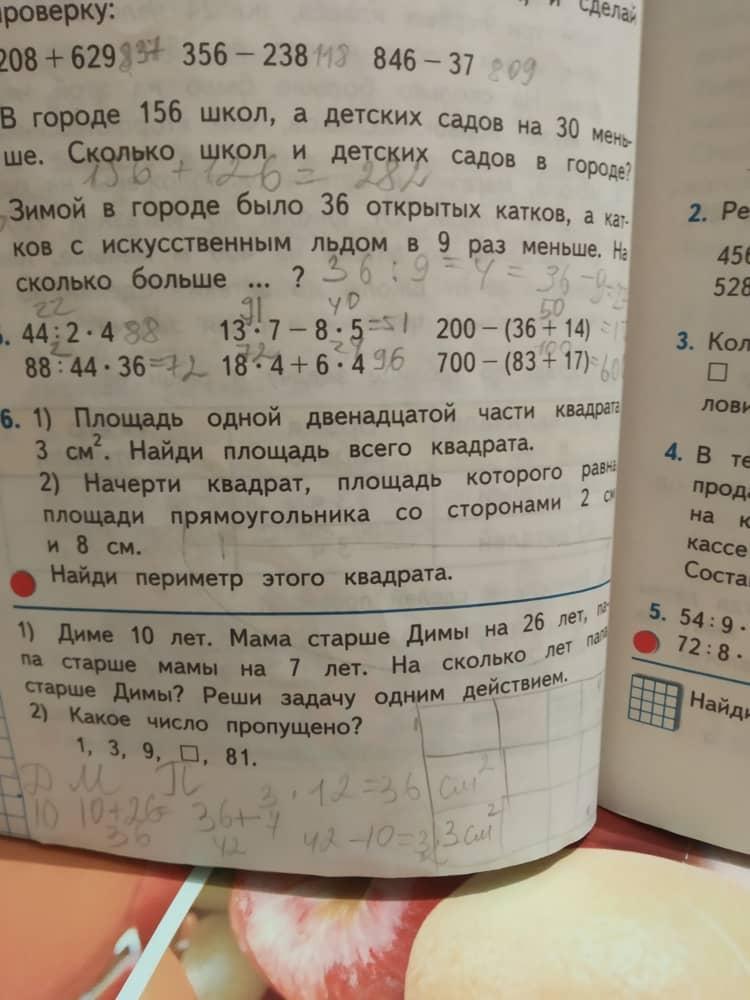 проверку:
и сделай
208 + 629 837 356 − 238 118 846 − 37 809
В городе 156 школ, а детских садов на 30 мень-
ше. Сколько школ и детских садов в городе?
156 + 126 = 282
Зимой в городе было 36 открытых катков, а кат-
ков с искусственным льдом в 9 раз меньше. На
сколько больше ... ? 36 : 9 = 4 = 36 −
22 91 40 50
44 : 2 · 4 88 13 · 7 − 8 · 5 = 51 200 − (36 + 14)
2 72 24 100
88 : 44 · 36 = 72 18 · 4 + 6 · 4 96 700 − (83 + 17) = 60
6. 1) Площадь одной двенадцатой части квадрата
3 см². Найди площадь всего квадрата.
2) Начерти квадрат, площадь которого равна
площади прямоугольника со сторонами 2 см
и 8 см.
Найди периметр этого квадрата.
1) Диме 10 лет. Мама старше Димы на 26 лет, па-
па старше мамы на 7 лет. На сколько лет папа
старше Димы? Реши задачу одним действием.
2) Какое число пропущено?
1, 3, 9, □, 81.
Д М П 3 · 12 = 36 см²
10 10+26 36+7
36 42 42 − 10 = 32 3 см²
2. Ре
456
528
3. Кол
□
лови
4. В те
прода
на к
кассе
Соста
5. 54 : 9 ·
72 : 8 ·
Найди